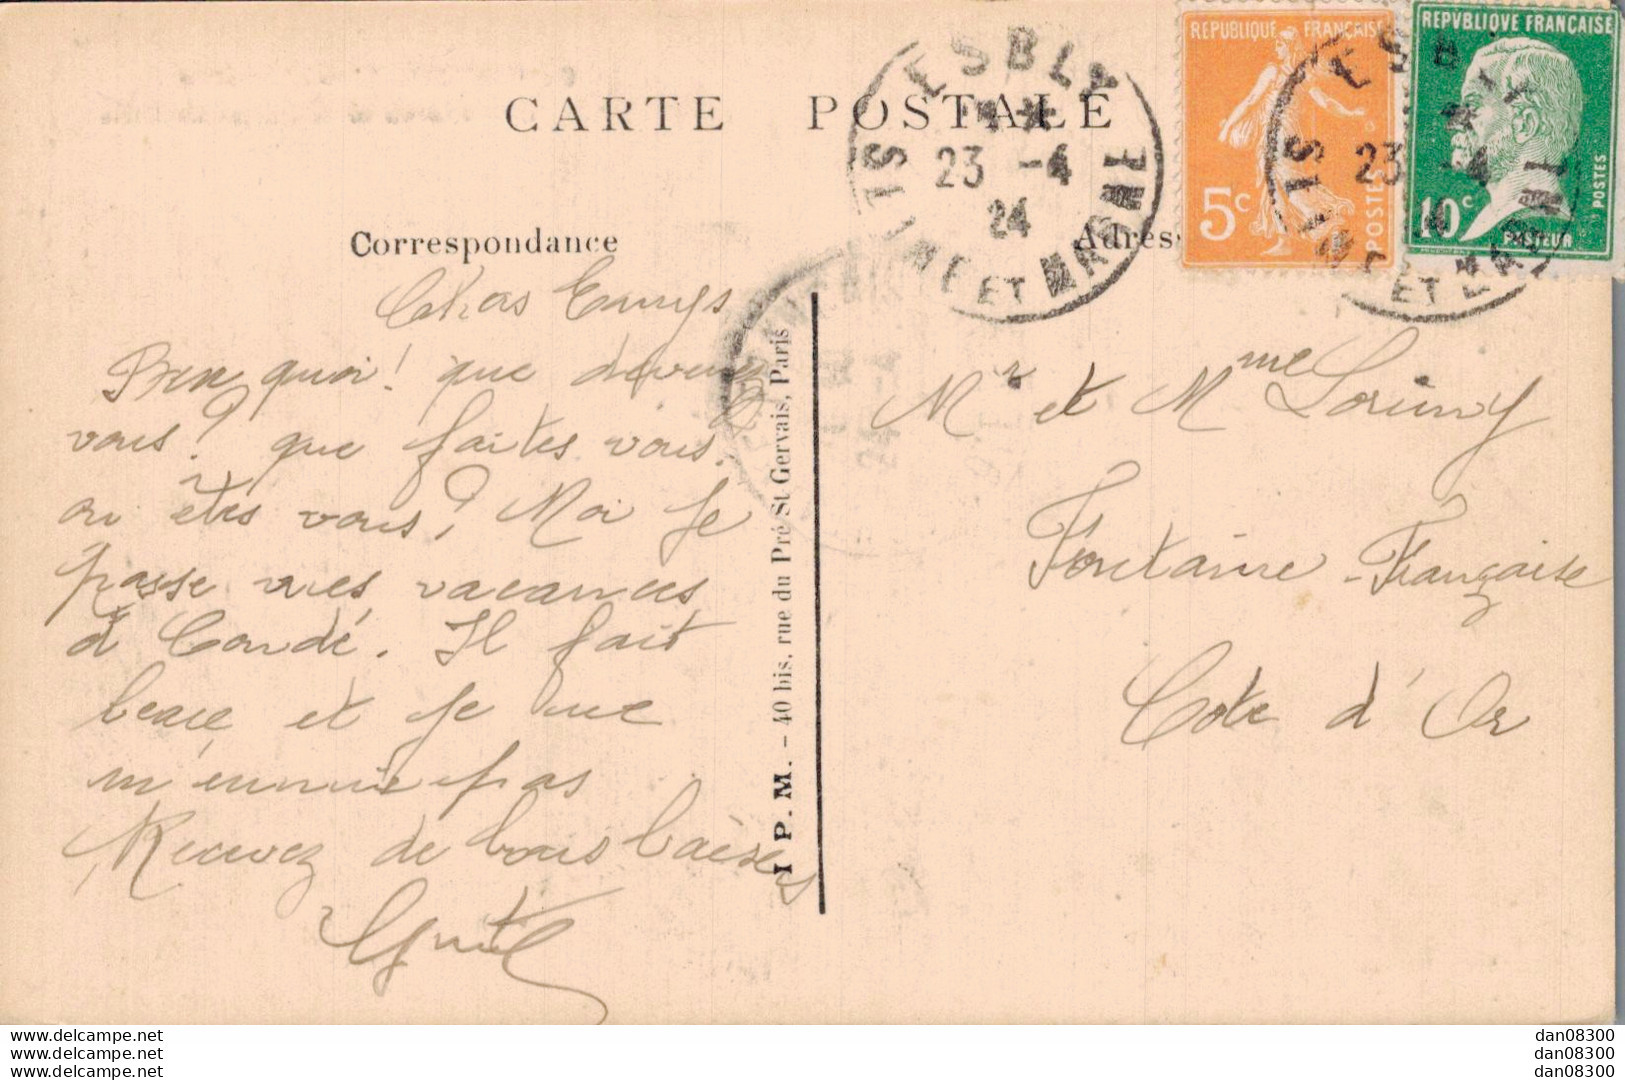 CARTE POSTALE
Correspondance
Adres
REPUBLIQUE FRANÇAISE
5c
POSTES
REPVBLIQVE FRANÇAISE
10c
POSTES
PASTEUR
ESBLY
23 -4
24
SEINE ET MARNE
ESBLY
23 -4
ET MARNE
Chers Amys
Ben quoi! que devenez
vous? que faites vous?
ou êtes vous? Moi je
passe mes vacances
à Condé. Il fait
beau et je ne
m'ennuie pas
Recevez de bons baisers
I P. M. - 40 bis, rue du Pré St Gervais, Paris
Mr et Mme
Fontaine-Française
Cote d'Or
delcampe.net
delcampe.net
delcampe.net
dan08300
dan08300
dan08300